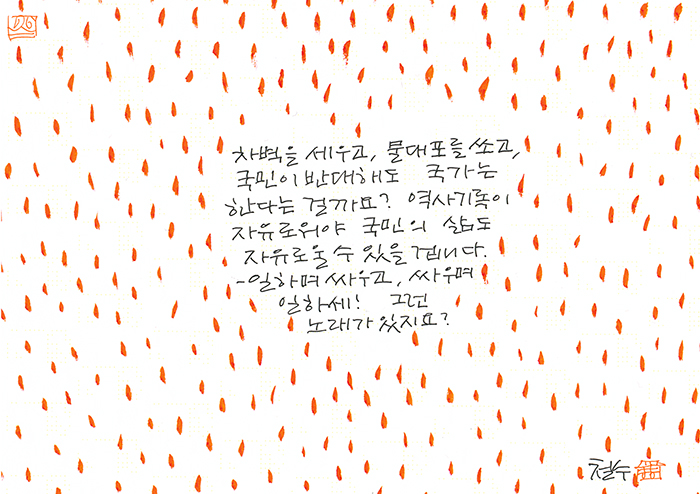 차벽을 세우고, 물대포를 쏘고,
국민이 반대해도 국가는
한다는 걸까요? 역사기록이
자유로워야 국민의 삶도
자유로울 수 있을 겝니다.
-일하며 싸우고, 싸우며
일하세! 그런
노래가 있지요?
철수